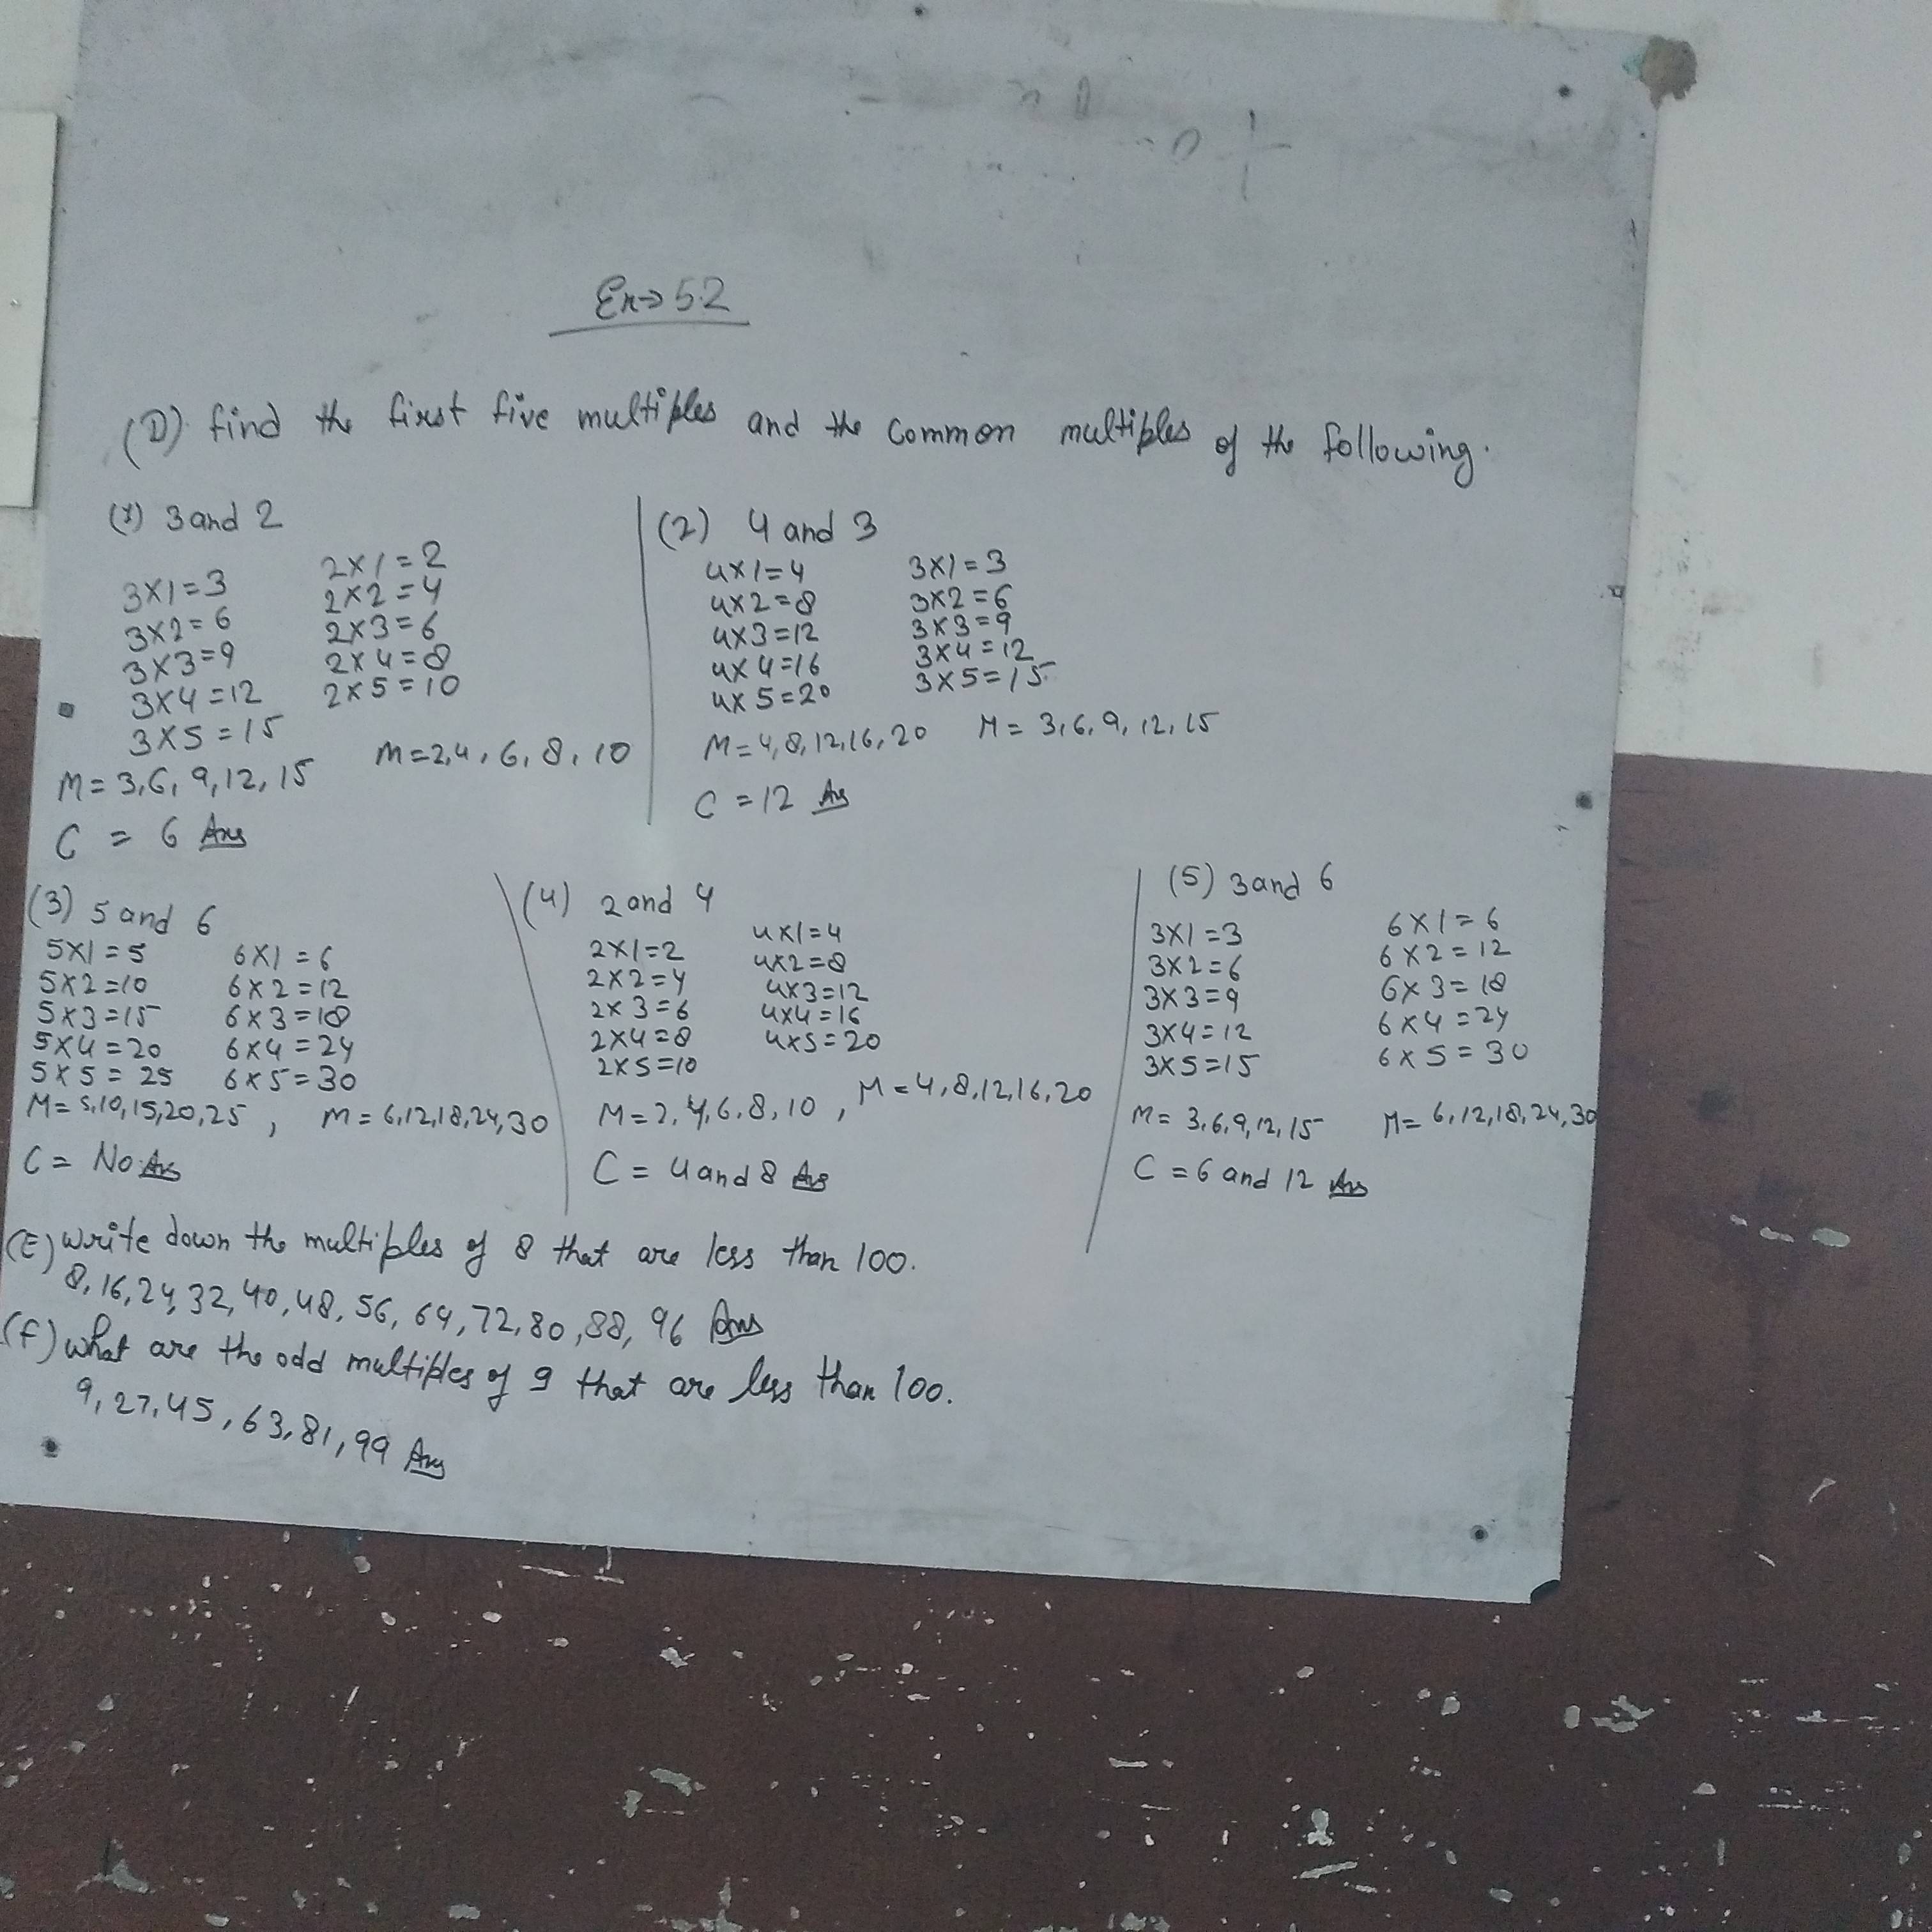 Ex→5.2
(D) find the first five multiples and the common multiples of the following.
(1) 3 and 2
3×1=3
3×2=6
3×3=9
3×4=12
3×5=15
2×1=2
2×2=4
2×3=6
2×4=8
2×5=10
M=3,6,9,12,15
M=2,4,6,8,10
C = 6 Ans
(2) 4 and 3
4×1=4
4×2=8
4×3=12
4×4=16
4×5=20
3×1=3
3×2=6
3×3=9
3×4=12
3×5=15
M=4,8,12,16,20
M=3,6,9,12,15
C=12 As
(3) 5 and 6
5×1=5
5×2=10
5×3=15
5×4=20
5×5=25
6×1=6
6×2=12
6×3=18
6×4=24
6×5=30
M=5,10,15,20,25, M=6,12,18,24,30
C= No Ans
(4) 2 and 4
2×1=2
2×2=4
2×3=6
2×4=8
2×5=10
4×1=4
4×2=8
4×3=12
4×4=16
4×5=20
M=2,4,6,8,10, M=4,8,12,16,20
C=4 and 8 Ans
(5) 3 and 6
3×1=3
3×2=6
3×3=9
3×4=12
3×5=15
6×1=6
6×2=12
6×3=18
6×4=24
6×5=30
M=3,6,9,12,15
M=6,12,18,24,30
C=6 and 12 Ans
(E) write down the multiples of 8 that are less than 100.
8,16,24,32,40,48,56,64,72,80,88,96 Ans
(f) what are the odd multiples of 9 that are less than 100.
9,27,45,63,81,99 Ans